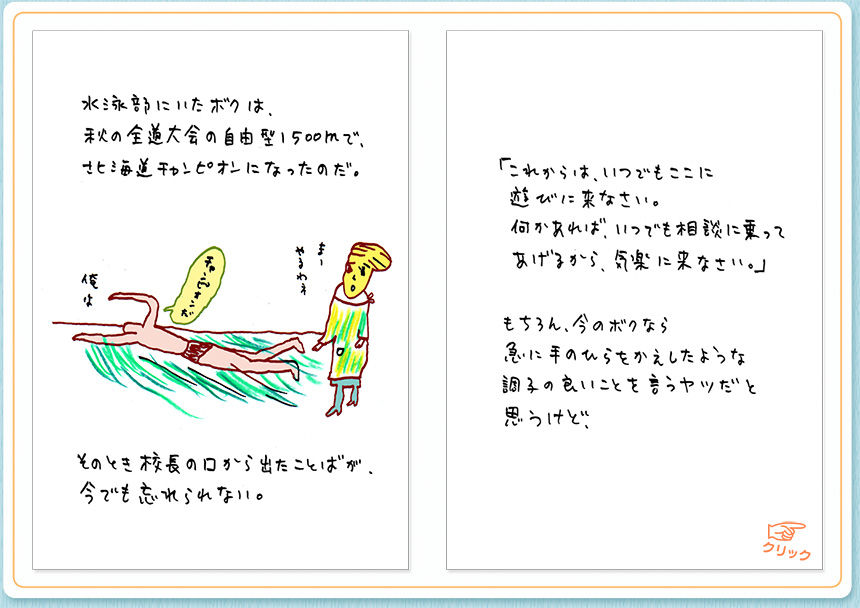 水泳部にいたボクは、
秋の全道大会の自由型1500mで、
北海道チャンピオンになったのだ。
俺は
チャンピオンだ
まー
やるわネ
そのとき校長の口から出たことばが、
今でも忘れられない。
「これからは、いつでもここに
遊びに来なさい。
何かあれば、いつでも相談に乗って
あげるから、気楽に来なさい。」
もちろん、今のボクなら
急に手のひらをかえしたような
調子の良いことを言うヤツだと
思うけど、
クリック